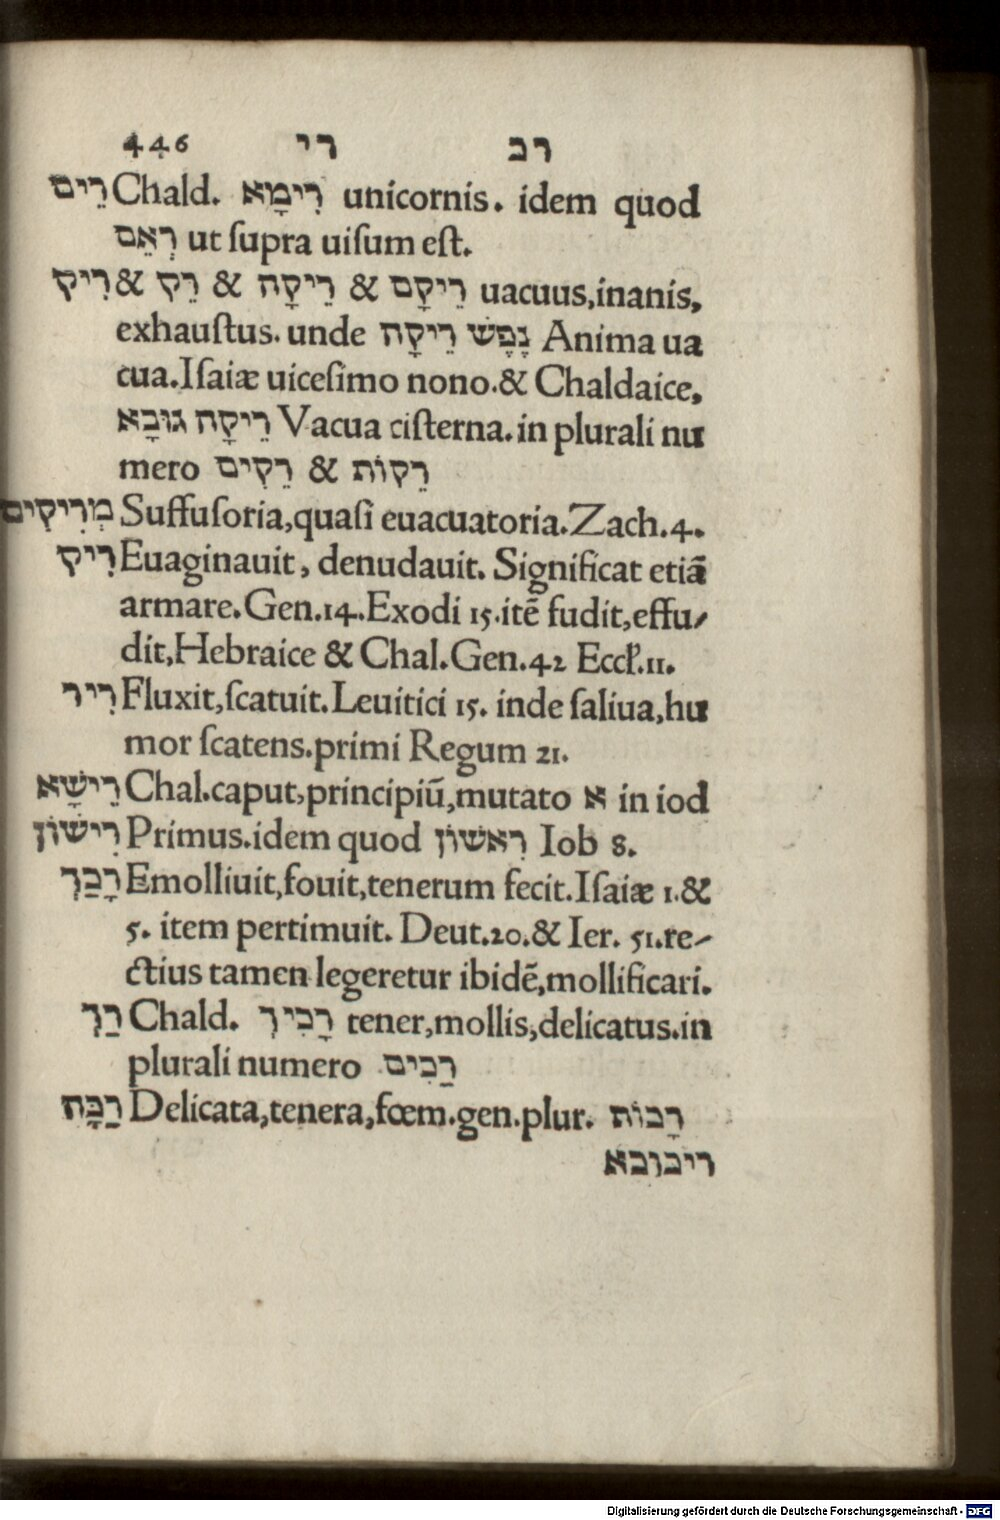 446 רי רכ
רֵים Chald. רִימָא unicornis. idem quod
רְאֵם ut ſupra uiſum eſt.
רִיק & רֵק & רֵיקָה & רֵיקָם uacuus,inanis,
exhauſtus. unde נֶפֶשׁ רֵיקָה Anima ua
cua.Iſaiæ uiceſimo nono.& Chaldaice,
רֵיקָה גּוּבָא Vacua ciſterna.in plurali nu
mero רֵקִים & רֵקוֹת
מְרִיקִים Suffuſoria,quaſi euacuatoria.Zach.4.
רִיק Euaginauit, denudauit. Significat etiã
armare.Gen.14.Exodi 15.itẽ fudit,effu-
dit,Hebraice & Chal.Gen.42 Eccl̃.11.
רִיר Fluxit,ſcatuit.Leuitici 15. inde ſaliua,hu
mor ſcatens.primi Regum 21.
רֵישָׁא Chal.caput,principiũ,mutato א in iod
רִישׁוֹן Primus.idem quod רִאשׁוֹן Iob 8.
רָכַךְ Emolliuit,fouit,tenerum fecit.Iſaiæ 1.&
5. item pertimuit. Deut.20.& Ier. 51.re-
ctius tamen legeretur ibidẽ,mollificari.
רַךְ Chald. רָכִיךְ tener,mollis,delicatus.in
plurali numero רַכִּים
רַכָּה Delicata,tenera,fœm.gen.plur. רָכוֹת
ריכובא
Digitalisierung gefördert durch die Deutsche Forschungsgemeinschaft - DFG